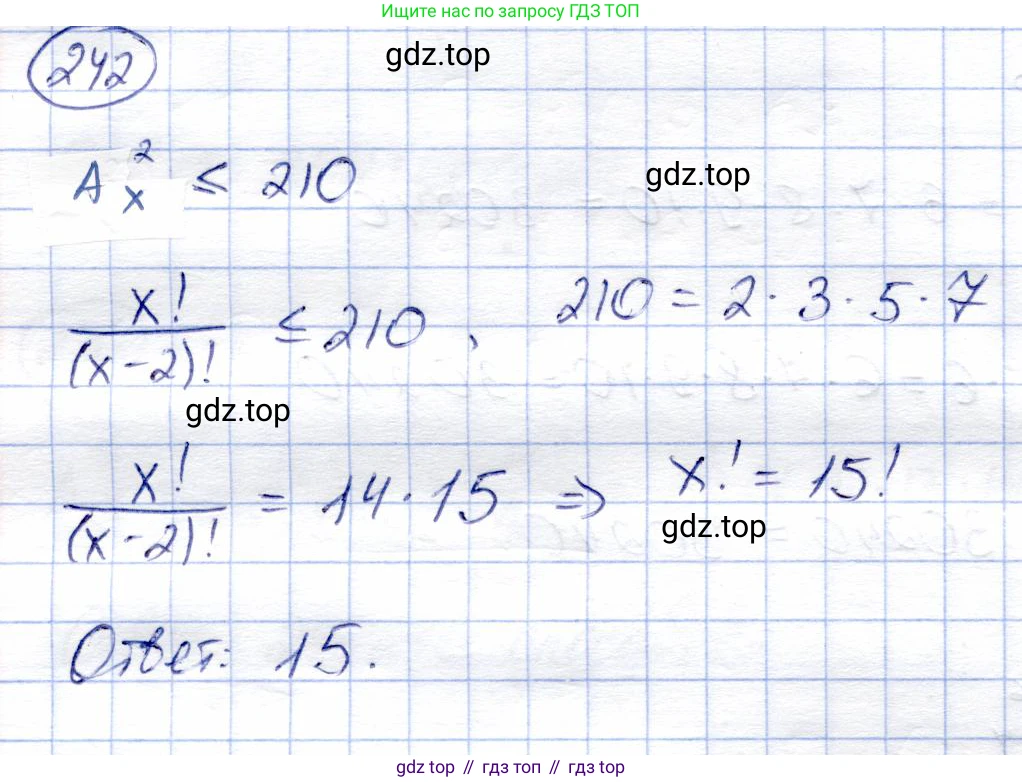 Ищите нас по запросу ГДЗ ТОП
242
gdz.top
A²ₓ ≤ 210
gdz.top
x!/(x-2)! ≤ 210, 210 = 2·3·5·7
gdz.top
x!/(x-2)! = 14·15 ⇒ x! = 15!
gdz.top
Ответ: 15.
gdz.top // гдз топ // gdz.top